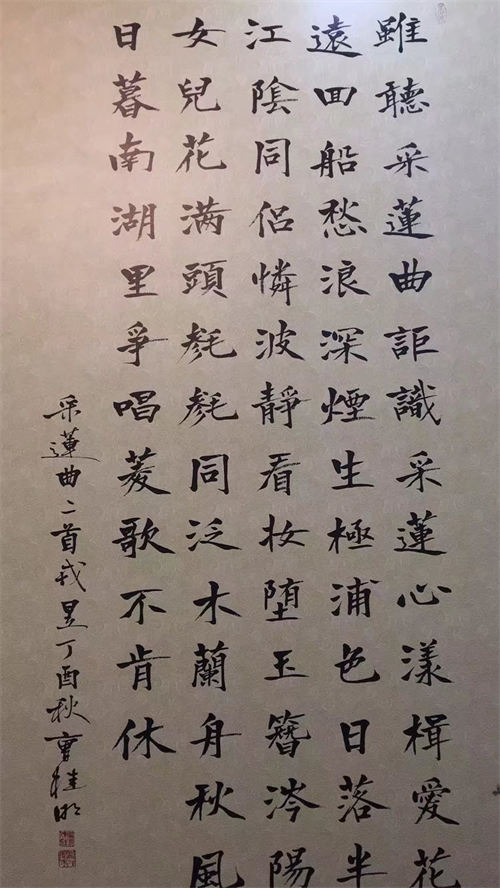 雖聽采蓮曲詎識采蓮心漾楫愛花
遠回船愁浪深煙生極浦色日落半
江陰同侶憐波靜看妝堕玉簪涔陽
女兒花满頭毿毿同泛木蘭舟秋風
日暮南湖里爭唱菱歌不肯休
采蓮曲二首戎昱丁酉秋曹桂明